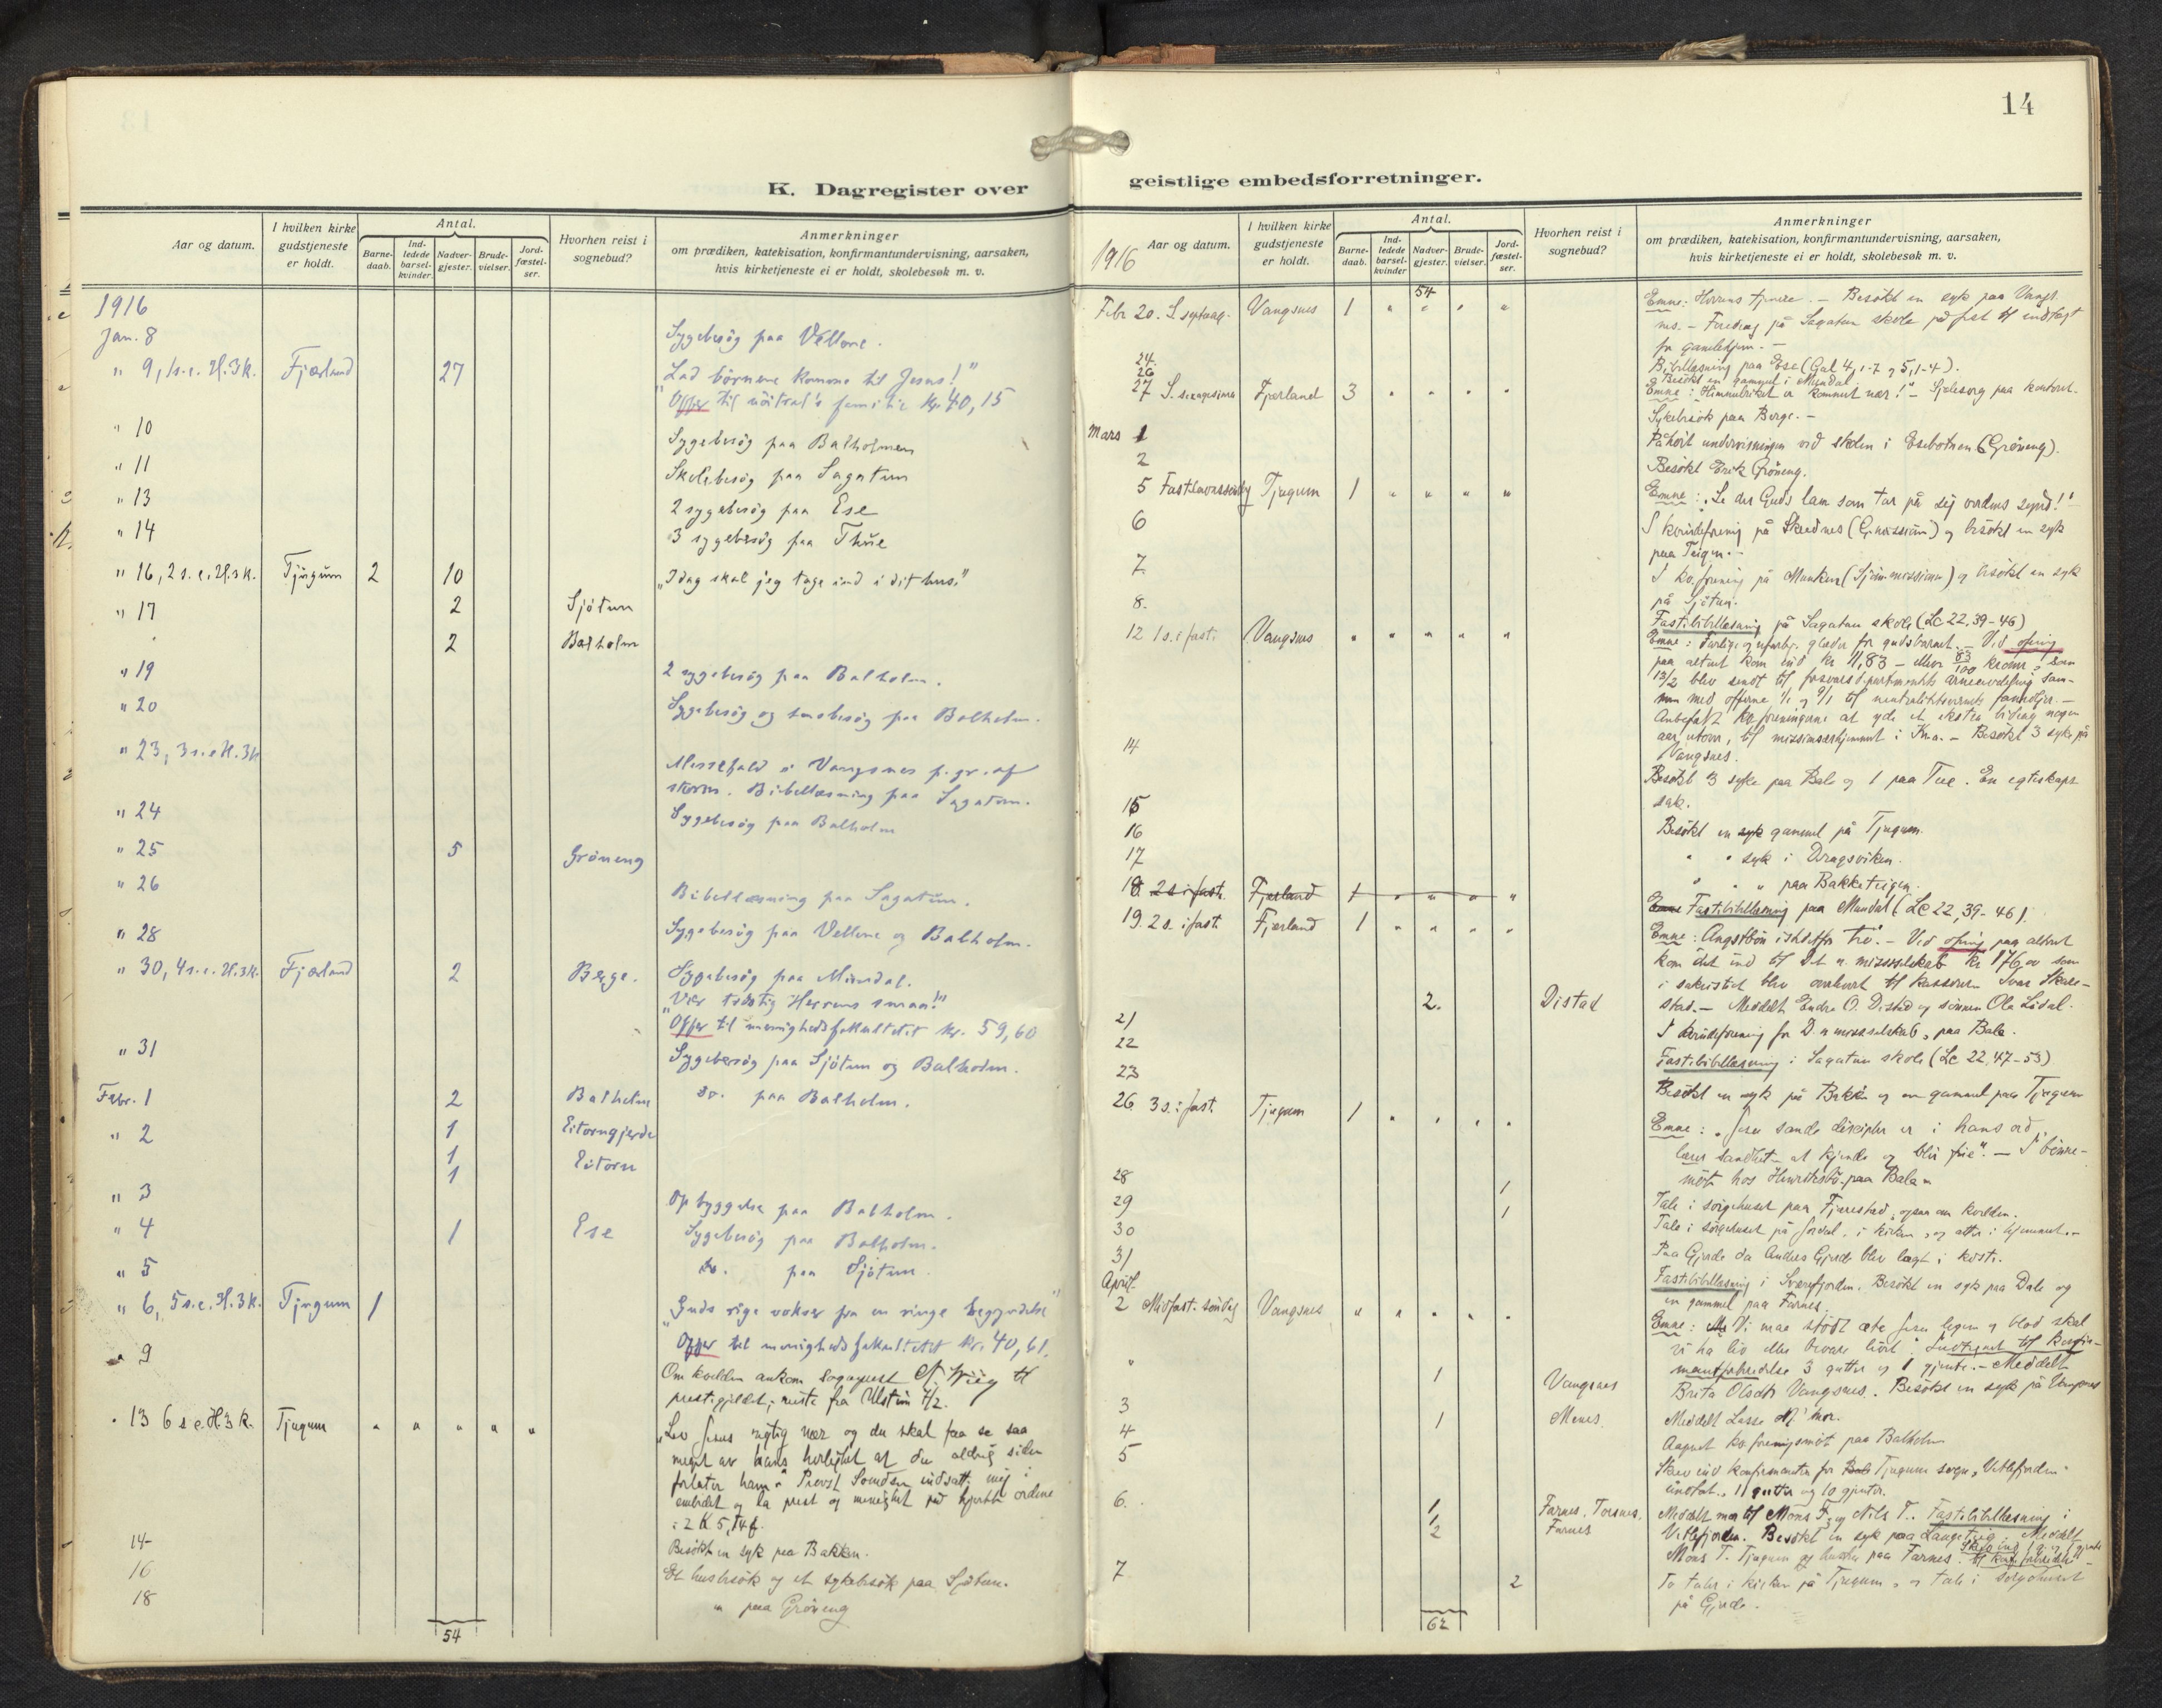 14
K. Dagregister over
geistlige embedsforretninger.
Aar og datum.
I hvilken kirke gudstjeneste er holdt.
Antal.
Barne-daab.
Ind-ledede barsel-kvinder.
Nadver-gjester.
Brude-vielser.
Jord-fæstel-ser.
Hvorhen reist i sognebud?
Anmerkninger
om prædiken, katekisation, konfirmantundervisning, aarsaken,
hvis kirketjeneste ei er holdt, skolebesøk m. v.
1916
Jan. 8 Sygebesøg paa Vellene.
" 9, 1 s. e. H. 3 k. Fjærland 27 "Lad børnene komme til Jesus!"
Offer til familie kr. 40,15
" 10 Sygebesøg paa Balholmen
" 11 Skolebesøg paa Sagatun
" 13 2 sygebesøg paa Ese
" 14 3 sygebesøg paa Thue
" 16, 2 s. e. H. 3 k. Tjugum 2 10 "Idag skal jeg tage ind i dit hus."
" 17 2 Sjøtun
2 Balholm
" 19 2 sygebesøg paa Balholm.
" 20 Sygebesøg og paa Balholm.
" 23, 3 s. e. H. 3 k Messefald i Vangsnes p. gr. af
storm. Bibellæsning paa Sagatun.
" 24 Sygebesøg paa Balholm
" 25 5 Grøneng
" 26 Bibellæsning paa Sagatun.
" 28 Sygebesøg paa Vellene og Balholm.
" 30, 4 s. e. H. 3 k. Fjærland 2 Berge. Sygebesøg paa Mundal.
"Vær trøstig Herrens smaa!"
Offer til menighedsfakultetet kr. 59,60
" 31 Sygebesøg paa Sjøtun og Balholm.
Febr. 1 2 Balholm do. paa Balholm.
" 2 1 Eitorngjerde
1 Eitorn
1
" 3 Opbyggelse paa Balholm.
" 4 1 Ese Sygebesøg paa Balholm.
" 5 do. paa Sjøtun.
" 6, 5 s. e. H. 3 k. Tjugum 1 "Guds rige vokser fra en ringe begyndelse"
Offer til menighedsfakultetet kr. 40,61.
" 9 Om kvelden ankom sogneprest
prestegjeldet, reiste fra Ulstein 7/2.
" 13 6 s e. H 3 k. Tjugum " " " " " "Lev Jesus rigtig nær og du skal faa se saa
meget av hans herlighet at du aldrig siden
forlater ham" Provst indsatte mig i
embedet og la prest og menighet paa hjertet ordene
i 2 K 5,14 f.
14 Besøkt en syk paa Bakken.
16 Et husbesøk og et sykebesøk paa Sjøtun.
18 " paa Grøneng
54
1916
Aar og datum.
I hvilken kirke gudstjeneste er holdt.
Antal.
Barne-daab.
Ind-ledede barsel-kvinder
Nadver-gjester.
Brude-vielser.
Jord-fæstel-ser.
Hvorhen reist i sognebud?
Anmerkninger
om prædiken, katekisation, konfirmantundervisning, aarsaken,
hvis kirketjeneste ei er holdt, skolebesøk m. v.
54
Febr. 20. S. septuag. Vangsnes 1 " " " " Emne: Herrens tjenere. — Besøkt en syk paa Vangs-
nes. — Foredrag på Sagatun skole
for gamlehjem. —
24. Bibellæsning paa Ese (Gal 4, 1-7 og 5, 1-4).
26 Besøkt en gammel i Mundal.
27 S. sexagesima Fjærland 3 " " " " Emne: "Himmeriket er kommet nær!" — Sjælesorg paa kontoret.
Sykebesøk paa Berge. —
Mars 1 Påhørt undervisningen ved skolen i Esebotnen (Grøneng).
2 Besøkt Erik Grøneng.
5 Fastelavnssøndag Tjugum 1 " " " " Emne: "Se det Guds lam som tar på sig verdens synd!"
6 I kvindeforening på Skeidnes og besøkt en syk
paa Teigen. —
7. I kv.forening på Munken (Sjømannsmission) og besøkt en syk
på Sjøtun.
8. Fastebibellæsning på Sagatun skole (Lc 22, 39-46)
12 1 s. i fast. Vangsnes " " " " " Emne: glæder for gudsbarnet. — Ved ofring
paa alteret kom ind kr 11,83 — elleve 83/100 kroner, som
13/2 blev sendt til forsvarsdepartementets
men med offerne 1/1 og 9/1 til
Anbefalt kv.foreningerne at yde et ekstra bidrag
til missionærhjemmet i Kr.a. — Besøkt 3 syke på
Vangsnes.
14 Besøkt 3 syke paa Bale og 1 paa Tue. En egteskaps-
sak.
15 Besøkt en syk gammel på Tjugum.
16 " " syk i Dragsviken.
17 " " " paa Bakketeigen.
18. 2 s i fast. Fjærland 1 " " " " Emne Fastebibellæsning paa Mundal (Lc 22, 39-46).
19. 2 s. i fast. Fjærland 1 " " " " Emne: Angstbøn istedetfor tro. — Ved ofring paa alteret
kom det ind til Det n. misjsselskab kr 176,00 som
i sakristiet blev overlevert til kassereren Skare-
stad. — Meddelt Endre O. Distad og sønnen Ola
2. Distad
21 I kvindeforening for D. n missselskab, paa Bale.
22 Fastebibellæsning i Sagatun skole (Lc 22, 47-53)
23 Besøkt en syk på Bakken og en gammel paa Tjugum
26 3 s. i fast. Tjugum 1 " " " " Emne: "Jesu sande disciple er i hans ord,
lærer sandhet at kjende og blir frie". — I bønne-
møte hos paa Bale
28 1 Tale i sørgehuset paa Fjærestad, ogsaa om kvelden.
29 1 Tale i sørgehuset på i kirken, og atter i hjemmet. —
30 Paa Gjerde da Anders Gjerde blev lagt i kiste.
31 Fastebibellæsning i Sværefjorden. Besøkt en syk paa Dale og
en gammel paa Farnes.
April.
2 Midfast. søndag Vangsnes " " " " " Emne: Vi maa stødt æte Jesu legem og blod skal
vi ha liv eller bevare livet. Indtegnet til konfir-
mantforberedelse 3 gutter og 1 gjente. — Meddelt
" 1 Vangsnes Brita Olsdtr Vangsnes. Besøkt en syk på Vangsnes
3 1 Menes. Meddelt Lasse mor.
4 kv.foreningsmøt paa Balholm
5 Skrev ind konfirmanter for Tjugums sogn, Vetlefjorden
undtat, 11 gutter og 10 gjenter.
6. 1 1 2 Farnes, Torsnes, Farnes Meddelt Mons F. og Nils T. Fastebibellæsning i
Vetlefjorden. Besøkt en syk paa Langeteig. Meddelt
Mons T. Tjugum og hustru paa Farnes.
7 2 To taler i kirken på Tjugum, og tale i sørgehuset
på Gjerde.
62